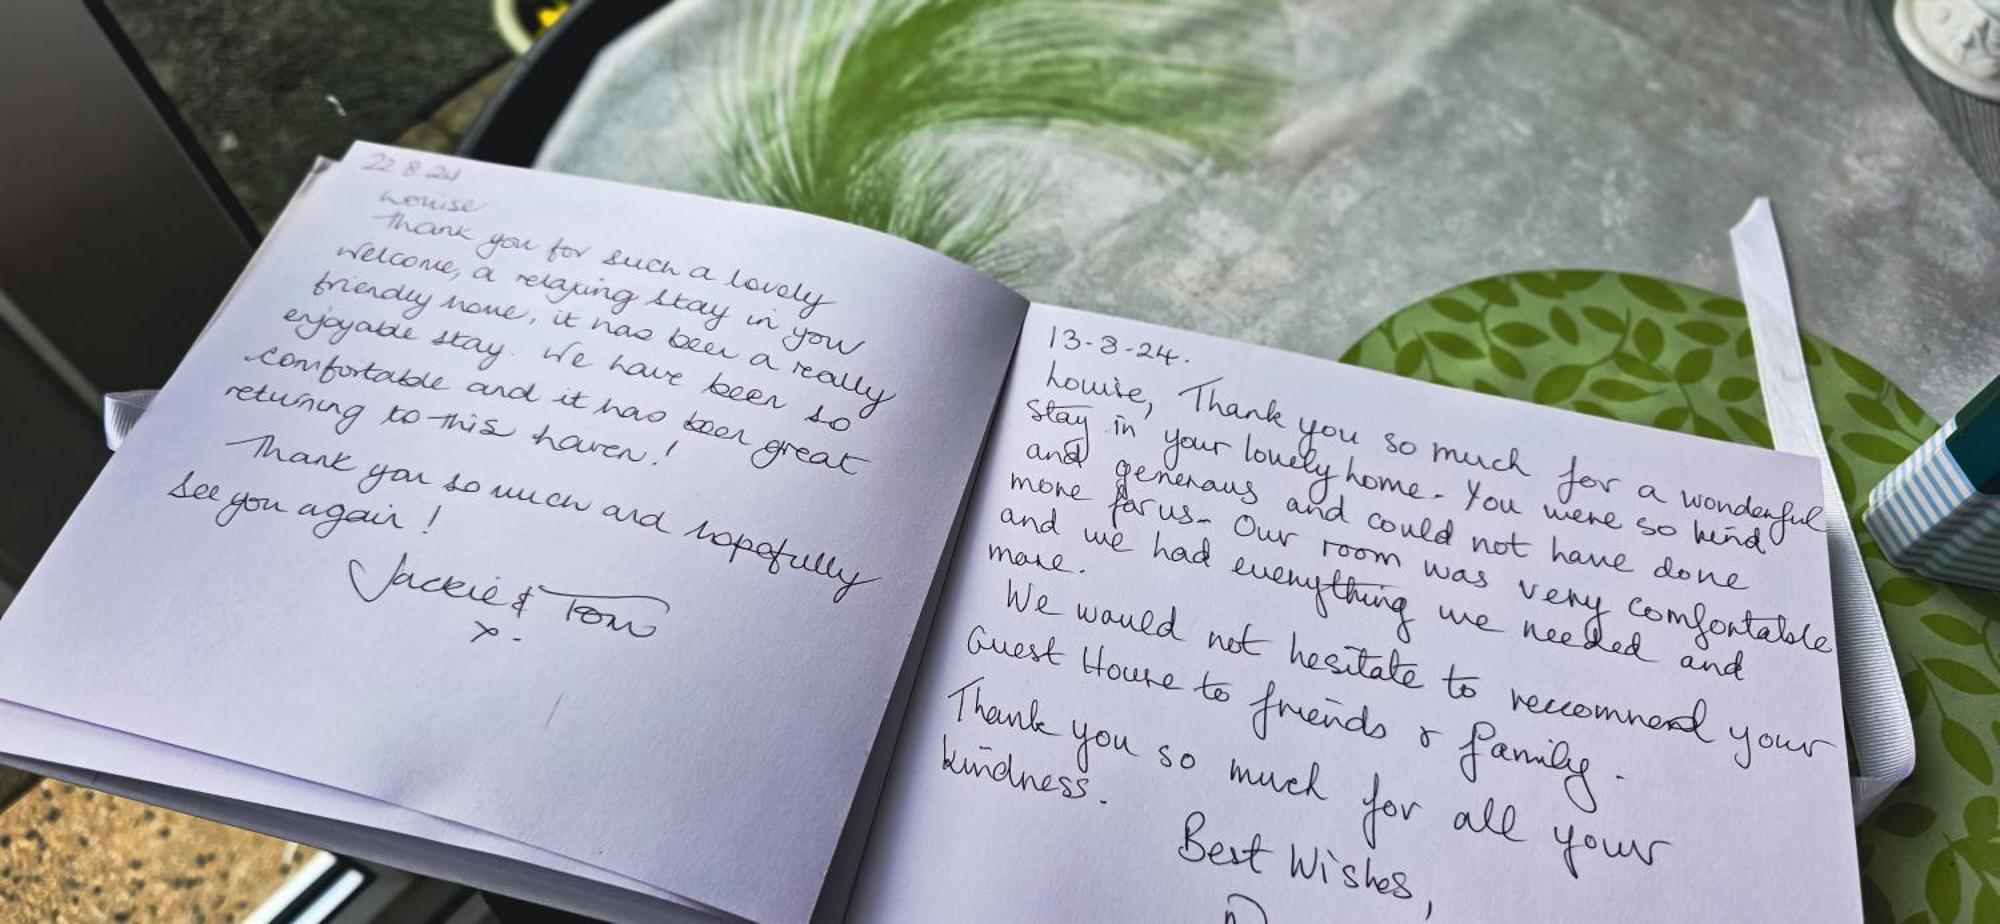 22.8.24
Louise
Thank you for such a lovely
welcome, a relaxing stay in you
friendly home, it has been a really
enjoyable stay. We have been so
comfortable and it has been great
returning to this haven!
Thank you so much and hopefully
see you again!
Jackie & Tom
x.
13-8-24.
Louise, Thank you so much for a wonderful
stay in your lovely home. You were so kind
and generous and could not have done
more for us. Our room was very comfortable
and we had everything we needed and
more.
We would not hesitate to recommend your
Guest House to friends & family.
Thank you so much for all your
kindness.
Best Wishes,